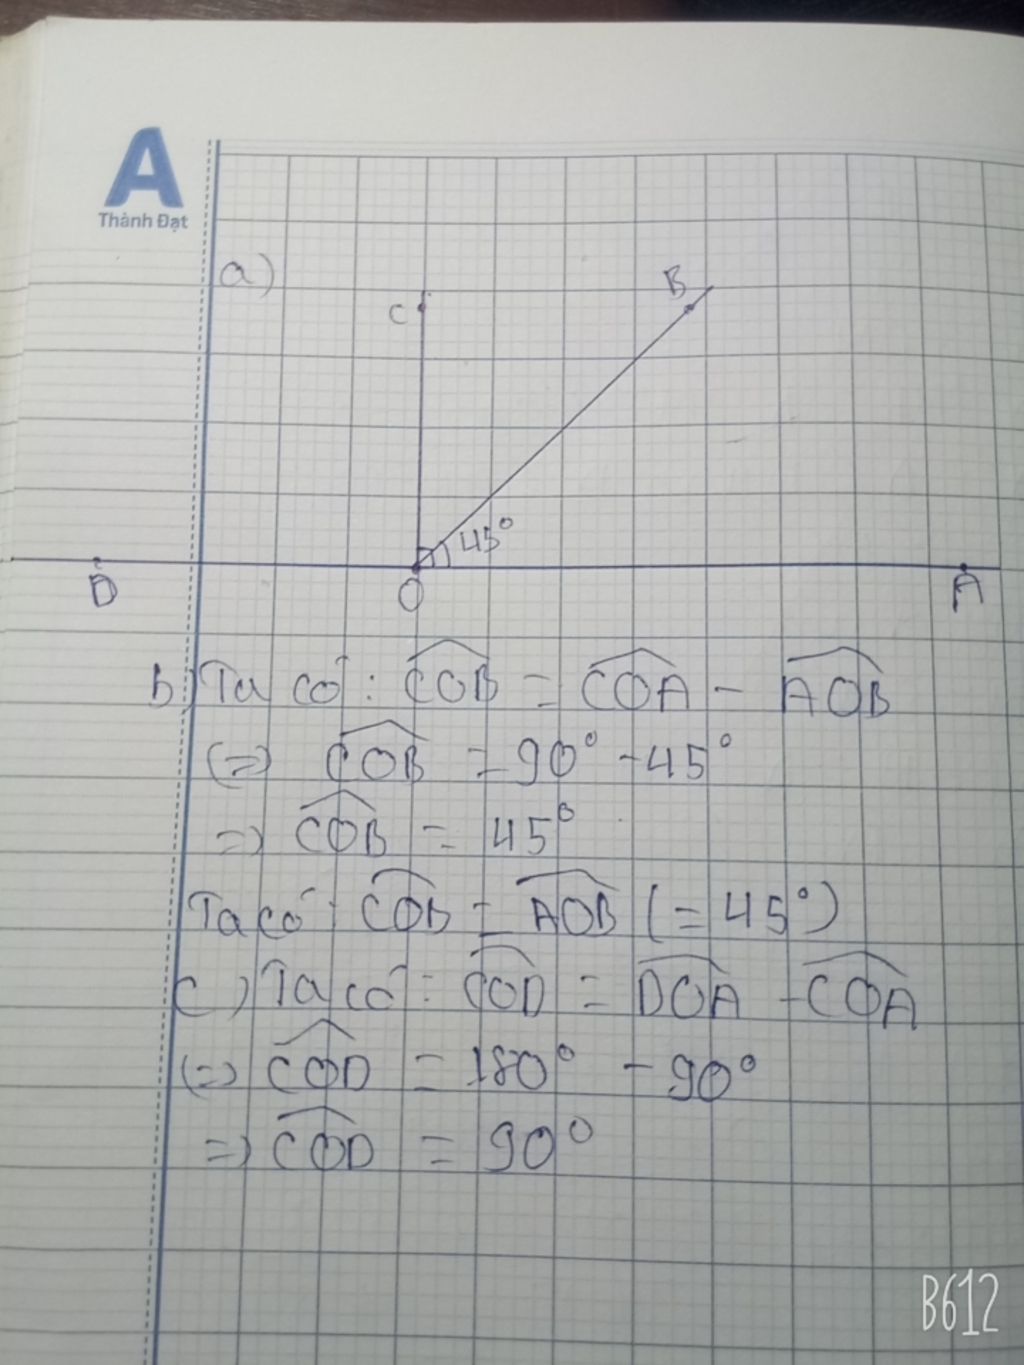 A
Thành Đạt
a)
C
B
45°
D
O
A
b) Ta có: COB = COA - AOB
(=) COB = 90° - 45°
=) COB = 45°
Ta có: COB = AOB (= 45°)
c) Ta có: COD = DOA - COA
(=) COD = 180° - 90°
=) COD = 90°
B612